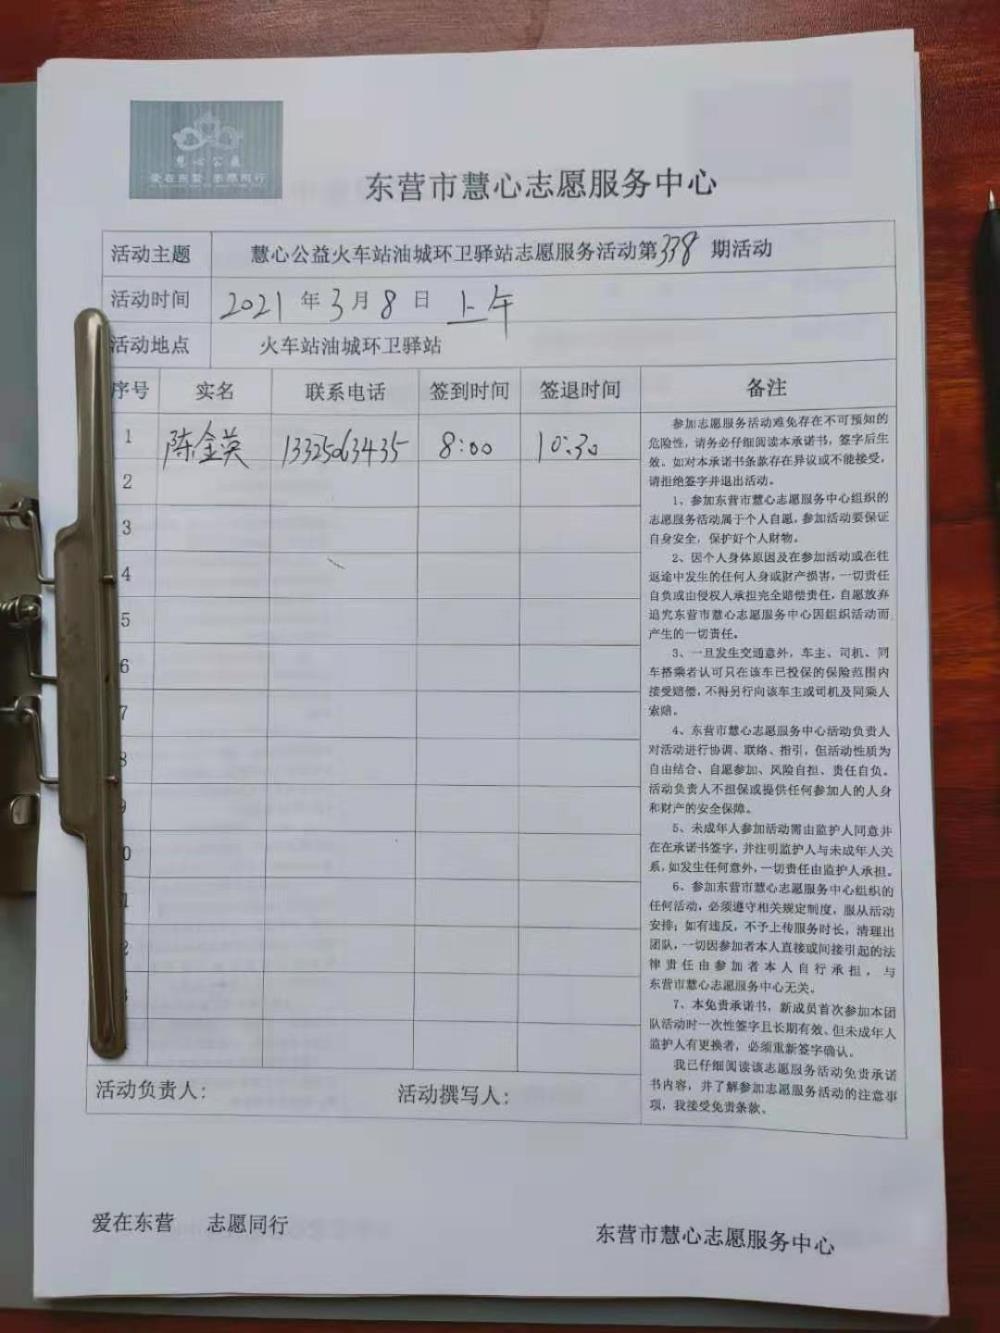 慧心公益
爱在东营 志愿同行
东营市慧心志愿服务中心
活动主题 慧心公益火车站油城环卫驿站志愿服务活动第338期活动
活动时间 2021年3月8日 上午
活动地点 火车站油城环卫驿站
序号 实名 联系电话 签到时间 签退时间 备注
1 陈金英 13325063435 8:00 10:30
2
3
4
5
6
7
8
9
0
1
2
参加志愿服务活动难免存在不可预知的
危险性，请务必仔细阅读本承诺书，签字后生
效。如对本承诺书条款存在异议或不能接受，
请拒绝签字并退出活动。
1、参加东营市慧心志愿服务中心组织的
志愿服务活动属于个人自愿，参加活动要保证
自身安全，保护好个人财物。
2、因个人身体原因及在参加活动或在往
返途中发生的任何人身或财产损害，一切责任
自负或由侵权人承担完全赔偿责任，自愿放弃
追究东营市慧心志愿服务中心因组织活动而
产生的一切责任。
3、一旦发生交通意外，车主、司机、同
车搭乘者认可只在该车已投保的保险范围内
接受赔偿，不得另行向该车主或司机及同乘人
索赔。
4、东营市慧心志愿服务中心活动负责人
对活动进行协调、联络、指引，但活动性质为
自由结合、自愿参加、风险自担、责任自负。
活动负责人不担保或提供任何参加人的人身
和财产的安全保障。
5、未成年人参加活动需由监护人同意并
在在承诺书签字，并注明监护人与未成年人关
系，如发生任何意外，一切责任由监护人承担。
6、参加东营市慧心志愿服务中心组织的
任何活动，必须遵守相关规定制度，服从活动
安排；如有违反，不予上传服务时长，清理出
团队，一切因参加者本人直接或间接引起的法
律责任由参加者本人自行承担，与
东营市慧心志愿服务中心无关。
7、本免责承诺书，新成员首次参加本团
队活动时一次性签字且长期有效、但未成年人
监护人有更换者，必须重新签字确认。
我已仔细阅读该志愿服务活动免责承诺
书内容，并了解参加志愿服务活动的注意事
项，我接受免责条款、
活动负责人： 活动撰写人：
爱在东营 志愿同行 东营市慧心志愿服务中心